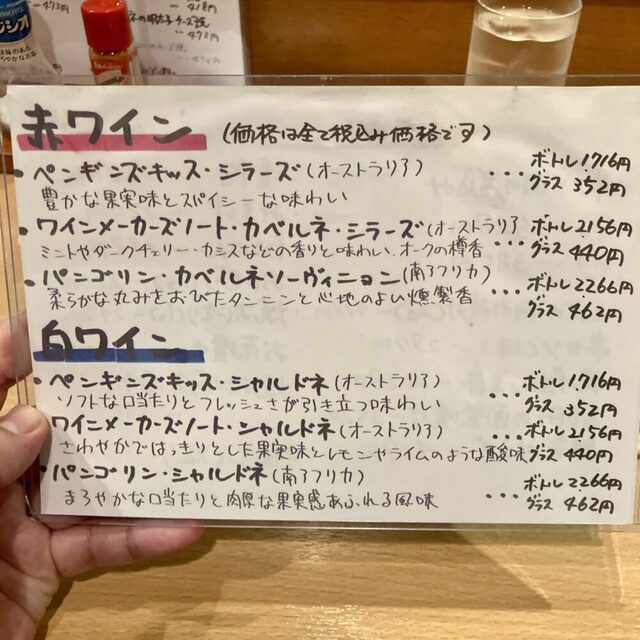 418円
473円
赤ワイン (価格は全て税込み価格です)
・ペンギンズキッス・シラーズ(オーストラリア) ... ボトル1716円
豊かな果実味とスパイシーな味わい グラス 352円
・ワインメーカーズノート・カベルネ・シラーズ(オーストラリア ... ボトル2156円
ミントやダークチェリー・カシスなどの香りと味わい.オークの樽香 グラス 440円
・パンゴリン・カベルネソーヴィニョン(南アフリカ) ... ボトル2266円
柔らかな丸みをおびたタンニンと心地のよい燻製香 グラス 462円
白ワイン
・ペンギンズキッス・シャルドネ(オーストラリア) ... ボトル1716円
ソフトな口当たりとフレッシュさが引き立つ味わい グラス 352円
ワインメーカーズノート・シャルドネ(オーストラリア) ... ボトル2156円
さわやかではっきりとした果実味とレモンやライムのような酸味 グラス 440円
・パンゴリン・シャルドネ(南アフリカ) ... ボトル2266円
まろやかな口当たりと肉厚な果実感あふれる風味 グラス 462円